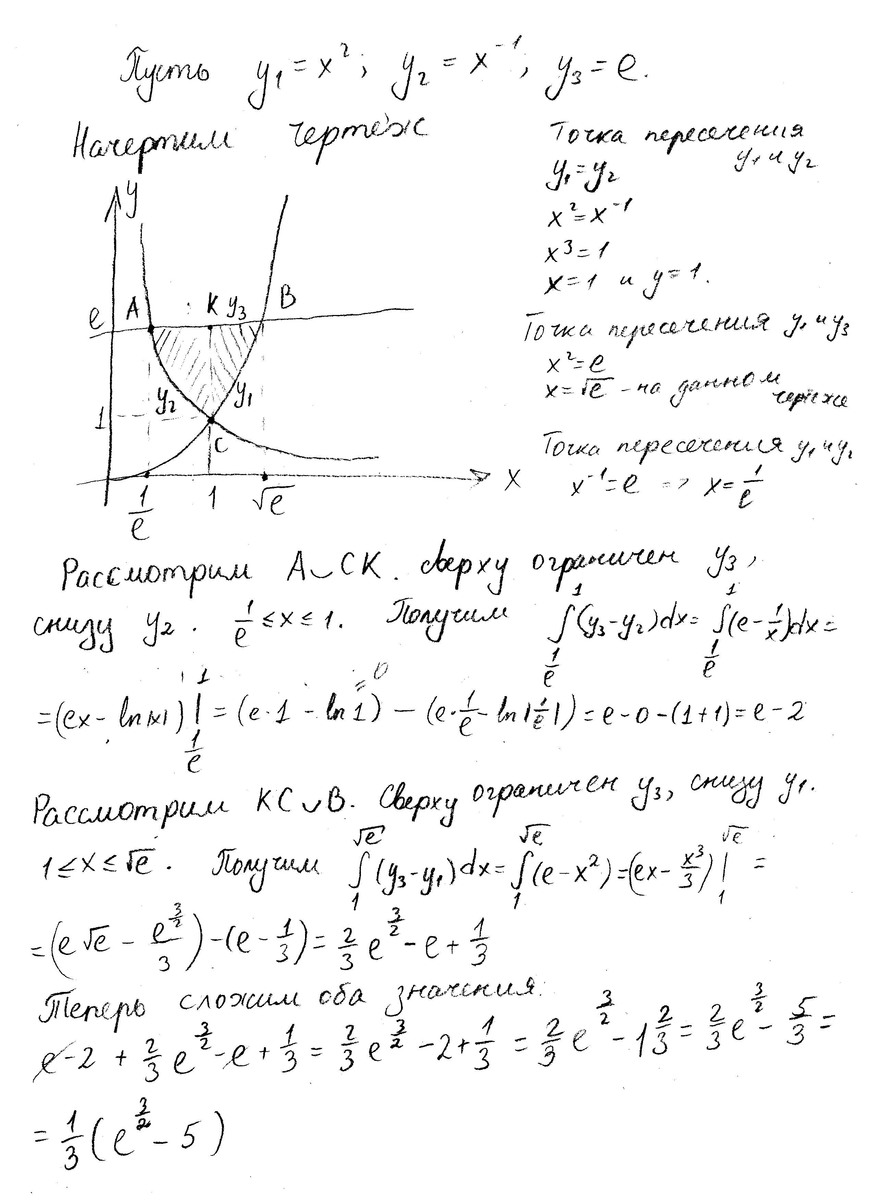 Пусть y₁ = x²; y₂ = x⁻¹, y₃ = e.
Начертим чертёж
y
e A K y₃ B
y₂ y₁
1
C
1/e 1 √e x
Точка пересечения
y₁ и y₂
y₁ = y₂
x² = x⁻¹
x³ = 1
x = 1 и y = 1.
Точка пересечения y₁ и y₃
x² = e
x = √e - на данном
чертеже
Точка пересечения y₁ и y₂
x⁻¹ = e => x = 1/e
Рассмотрим A◡CK. Сверху ограничен y₃,
снизу y₂. 1/e ≤ x ≤ 1. Получим ∫_{1/e}^{1} (y₃ - y₂)dx = ∫_{1/e}^{1} (e - 1/x)dx =
= (ex - ln|x|) |_{1/e}^{1} = (e·1 - ln 1) - (e·1/e - ln|1/e|) = e - 0 - (1+1) = e - 2
= 0
Рассмотрим KC◡B. Сверху ограничен y₃, снизу y₁.
1 ≤ x ≤ √e. Получим ∫_{1}^{√e} (y₃ - y₁)dx = ∫_{1}^{√e} (e - x²) = (ex - x³/3) |_{1}^{√e} =
= (e√e - e^{3/2}/3) - (e - 1/3) = 2/3 e^{3/2} - e + 1/3
Теперь сложим оба значения.
e - 2 + 2/3 e^{3/2} - e + 1/3 = 2/3 e^{3/2} - 2 + 1/3 = 2/3 e^{3/2} - 1 2/3 = 2/3 e^{3/2} - 5/3 =
= 1/3 (e^{3/2} - 5)